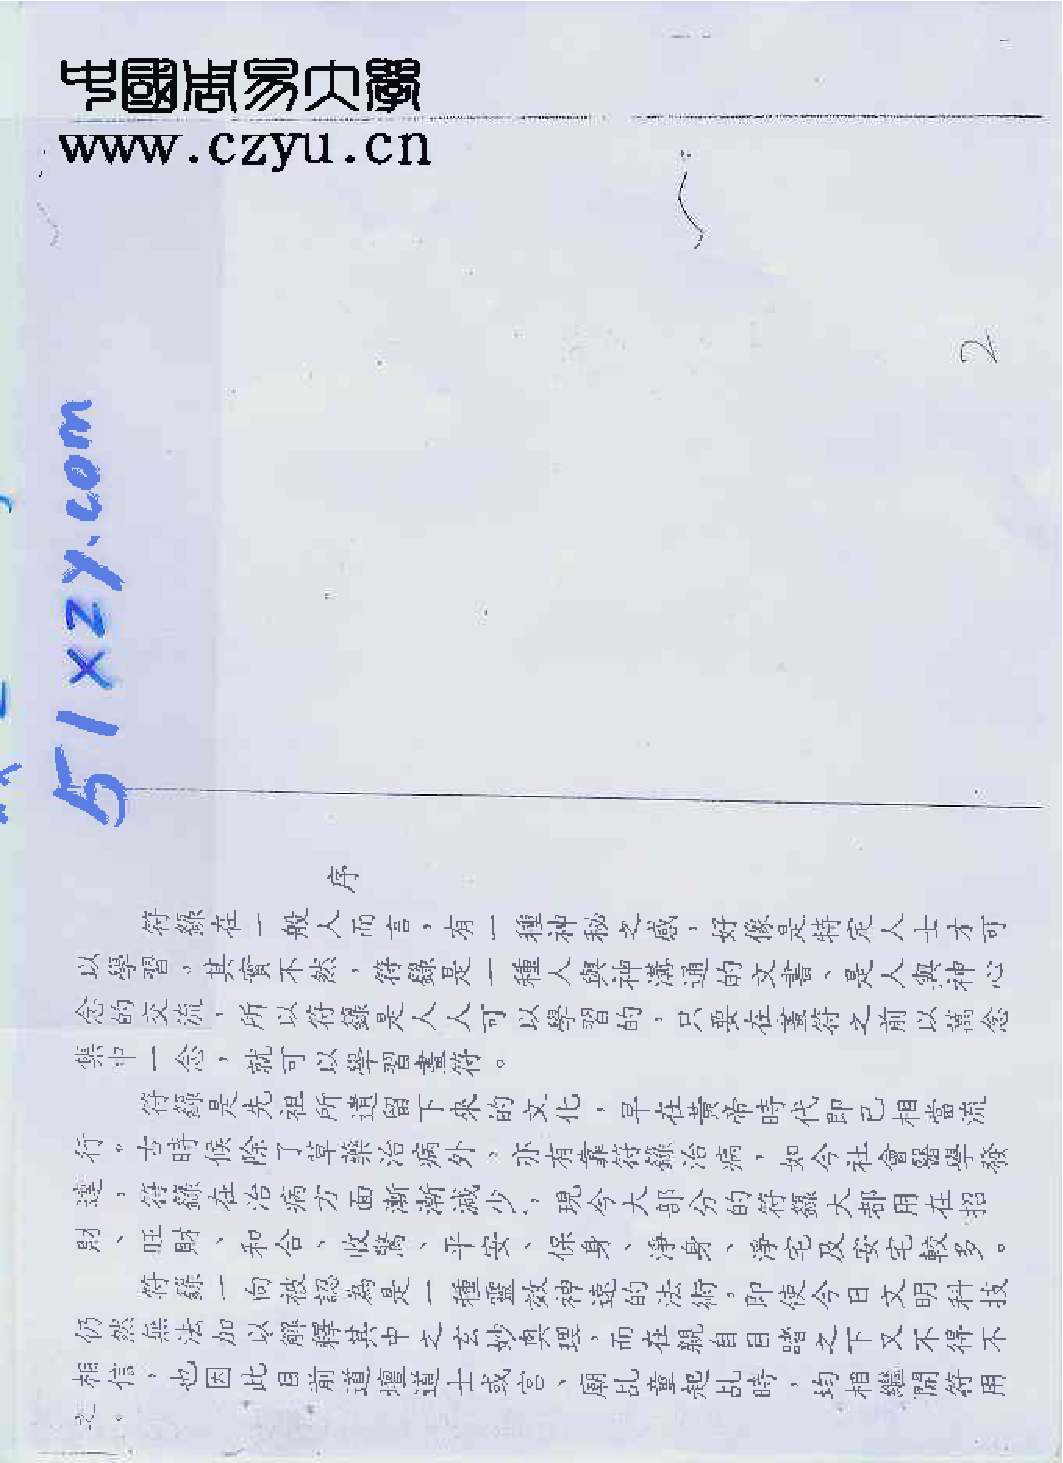 中國周易大學
www.czyu.cn
2
51xzy.com
序
符籙在一般人而言，有一種神秘之感，好像是特定人士才可
以學習，其實不然，符籙是一種人與神溝通的文書、是人與神心
念的交流，所以符籙是人人可以學習的，只要在畫符之前以萬念
集中一念，就可以學習畫符。
符籙是先祖所遺留下來的文化，早在黃帝時代即已相當流
行，古時候除了草藥治病外，亦有靠符籙治病，如今社會醫學發
達，符籙在治病方面漸漸減少，現今大部分的符籙大都用在招
財、旺財、和合、收驚、平安、保身、淨身、淨宅及安宅較多。
符籙一向被認為是一種靈效神速的法術，即使今日文明科技
仍然無法加以解釋其中之玄妙真理，而在親自目睹之下又不得不
相信，也因此目前道壇道士或宮、廟乩童起乩時，均相繼開符用
之。